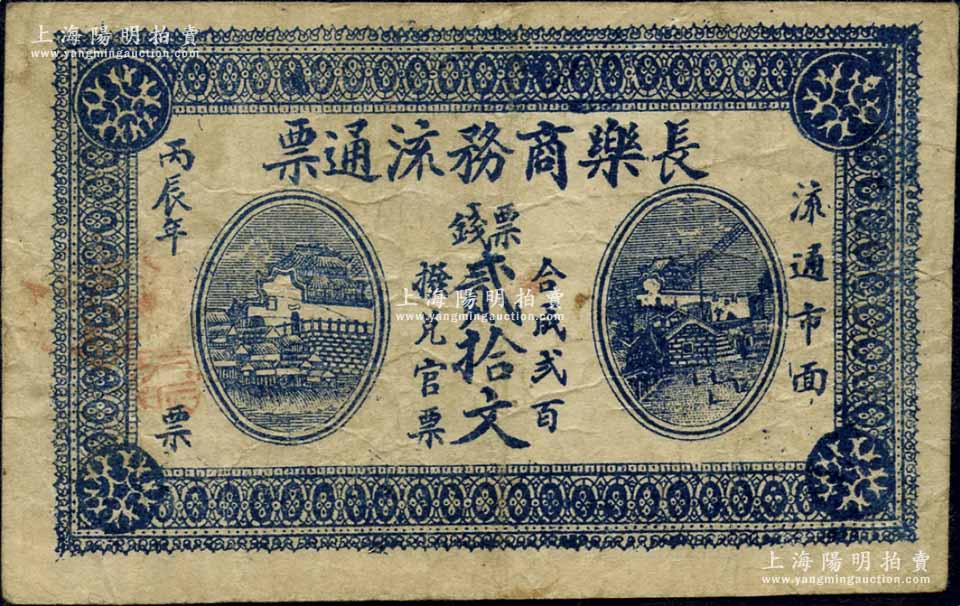 上海陽明拍賣
www.yangmingauction.com
上海陽明拍賣
www.yangmingauction.com
長樂商務流通票
流通市面
合成弍百
票錢貳拾文
撥兌官票
丙辰年
票
上海陽明拍賣
www.yangmingauction.com
上海陽明拍賣
www.yangmingauction.com